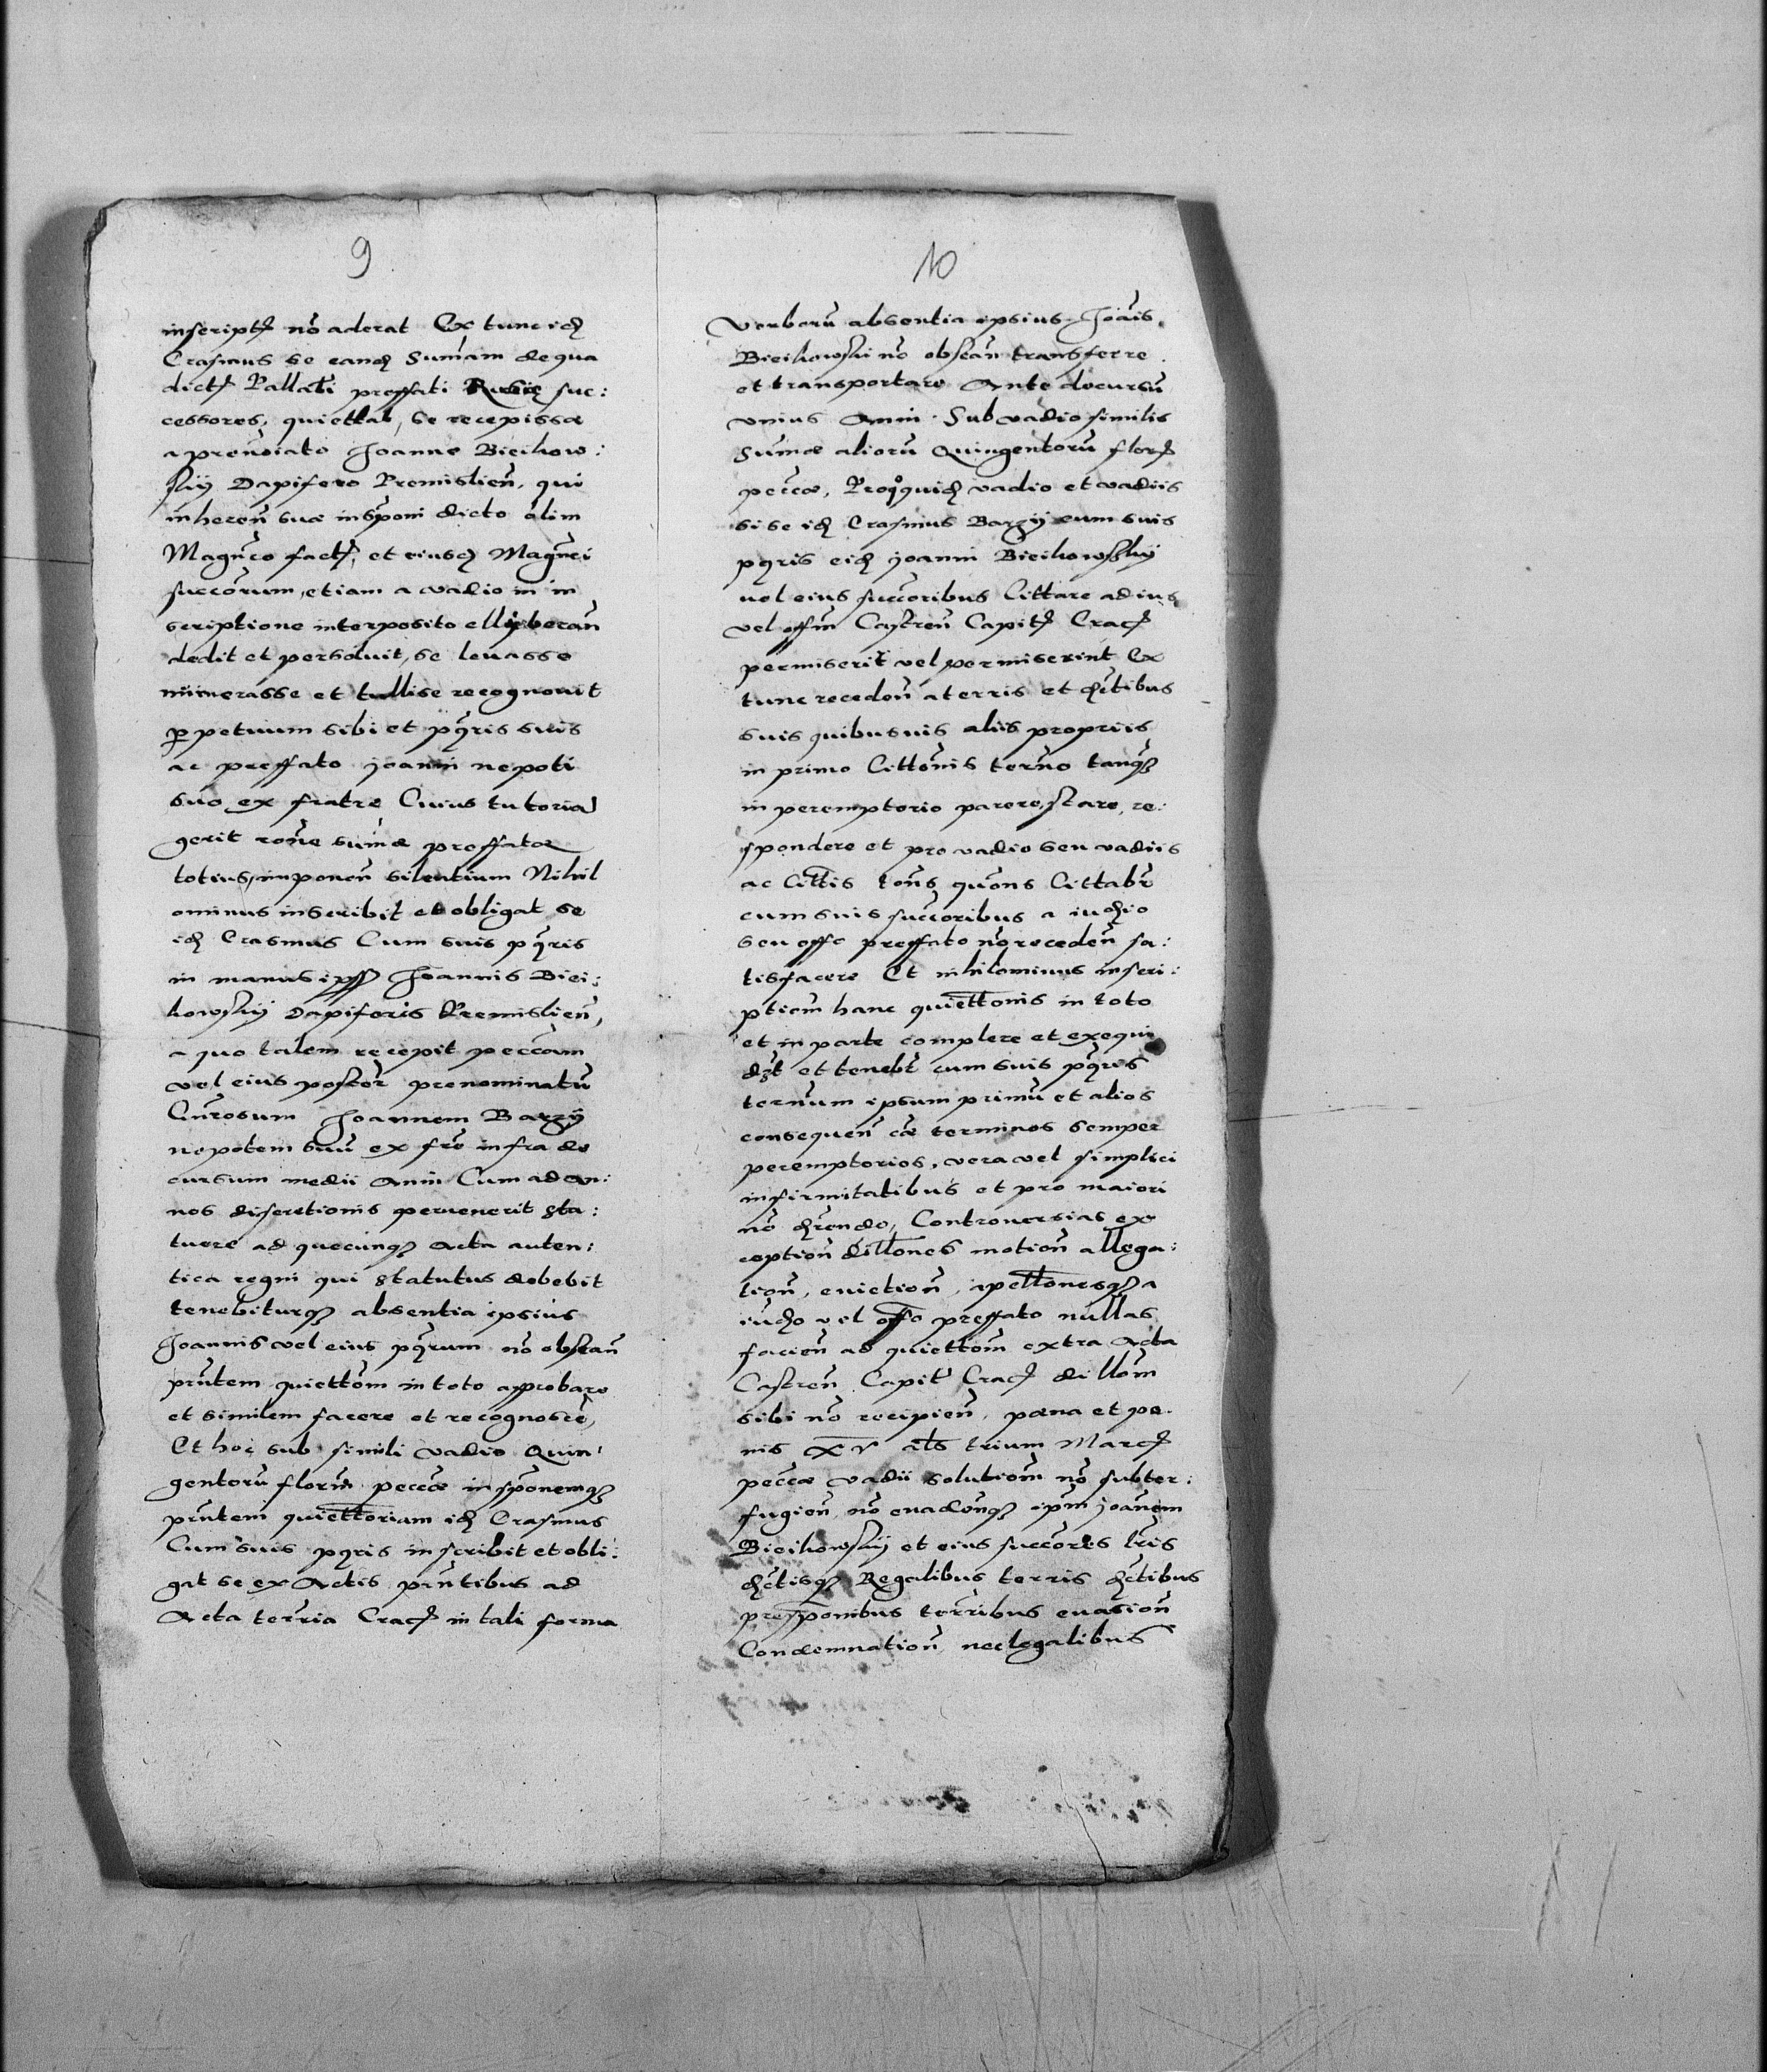 9
inscriptẽ nõ aderat Ex tunc idẽ
Erasmus se eandẽ Sum̃am de qua
dictẽ Pallati preffati Rusię suc:
cessores, quiettat, se recepisse
a prenõiato Joanne Bieikow:
skij Dapifero Premislieñ, qui
inhereñ suæ inscr̃ponj dicto olim
Magñco factẽ, et eiusdẽ Magñci
succõrum, etiam a vadio in in
scriptione interposito ellyberañ
dedit et persoluit, se leuasse
numerasse et tullise recognouit
ꝑpetuum sibi et pq̃ris suis
ac preffato joanni nepoti
suo ex fratre Cuius tutoriã
gerit rõne sum̃æ preffatæ
totius, imponeñ silentium Nihil
ominus inscribit et obligat se
idẽ Erasmus Cum suis pq̃ris
in manus ipsẽ Joannis Biei:
kowskij Dapiferis Premislieñ,
a quo talem recepit peccam̃
vel eius postẽr prenominatũ
Gñrosum Joannem Barzij
nepotem suũ ex frẽ infra de
cursum medii Anni Cum ad an:
nos discretionis peruenerit sta:
tuere ad quecunqꝫ acta auten:
tica regni qui statutus debebit
tenebiturqꝫ absentia ipsius
Joannis vel eius pq̃rum nõ obstañ
prñtem quiettõm in toto approbare
et similem facere et recognoscẽ,
Et hoc sub simili vadio Quin
gentorũ florẽn pecc̃æ inscr̃ponemqꝫ
prñtem quiettoriam idẽ Erasmus
Cum suis pq̃ris inscribit et obli:
gat se ex Actis prñtibus ad
Acta terr̃ia Cracẽ in tali forma
10
Verborũ absentia ipsius Joãis
Bieikowski nõ obstañ transferre
et transportare Ante decursũ
vnius Anni Sub vadio similis
Sum̃æ aliorũ Quingentorũ florẽ
pecc̃æ, Pro quidẽ vadio et vadiis
si se idẽ Erasmus Barzij cum suis
pq̃ris eidẽ joanni Bieikowskij
vel eius succõribus Cittare ad ius
vel offm̃ Castreñ Capitẽ Cracẽ
permiserit vel permiserint Ex
tunc recedeñ a terris et dc̃tibus
suis quibusuis aliis propriis
in primo Cittõnis terño tanqꝫ
in peremptorio parere, stare, re:
spondere et pro vadio seu vadiis
ac Citt̃is tõns quõns Cittabr̃
cum suis succõribus a iudẽio
seu offo preffato nõ recedeñ sa:
tisfacere Et nihilominus inscri:
ptiõm hanc quiettonis in toto
et in parte complere et exequi
dẽt et tenebr̃ cum suis pq̃ris
terñum ipsum primũ et alios
consequeñ eæ terminos semper
peremptorios, vera vel simplici
infirmitatibus et pro maiori
nõ dẽrendo, Controuersias ex
ceptioñ dillones motioñ allega:
tioñ, euictioñ, apellonesqꝫ a
iudẽo vel offo preffato nullas
facieñ ad quiettõm extra Acta
Castreñ Capit̃ Cracẽ dillõm
sibi nõ recipieñ, pæna et pæ
nis XV als trium Marcẽ
pecc̃æ vadii solutiõm nõ subter:
fugieñ nõ euadeñqꝫ ipm̃ joañem
Bieikowskij et eius succõres lr̃is
dc̃tisqꝫ Regalibus terris dc̃tibus
prescr̃ponibus terr̃ibus euasioñ
Condemnatioñ nec legalibus